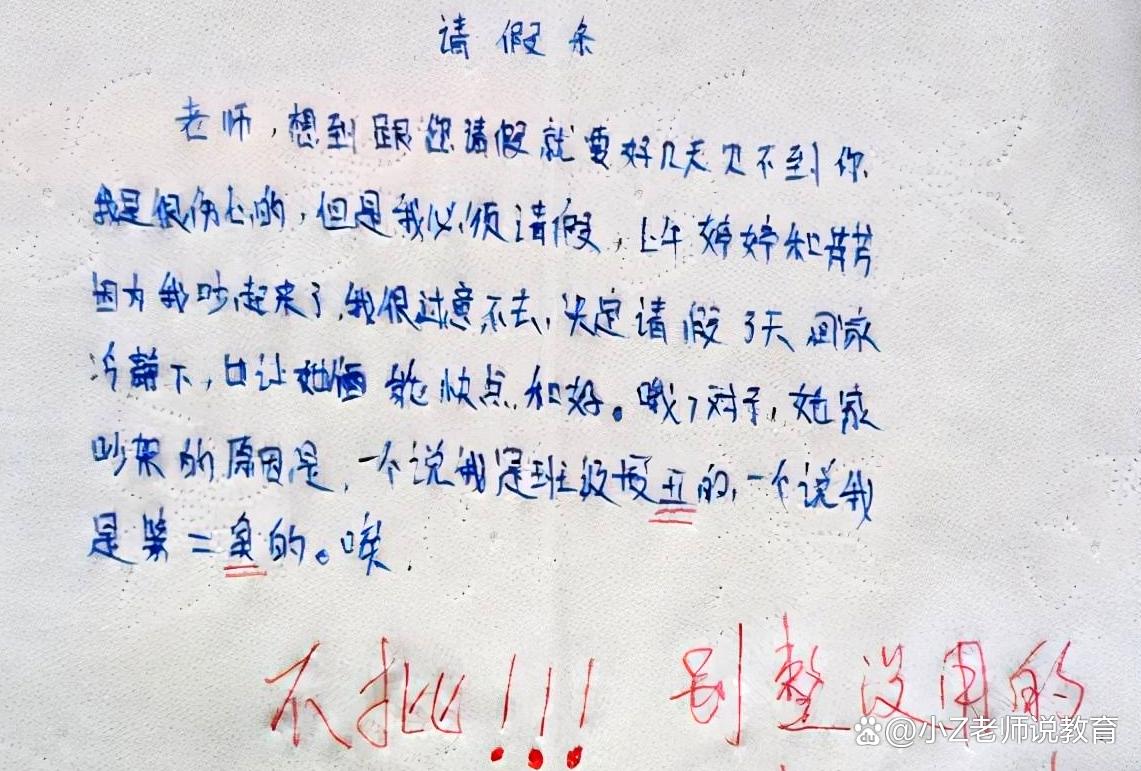 请假条
老师，想到跟您请假就要好几天见不到你
我是很伤心的，但是我必须请假，上午婷婷和芳芳
因为我吵起来了，我很过意不去，决定请假3天回家
冷静下，也让她俩能快点和好。哦，对了，她家
吵架的原因是，一个说我是班级最丑的，一个说我
是第二臭的。唉.
不批!!! 别整没用的
@小Z老师说教育